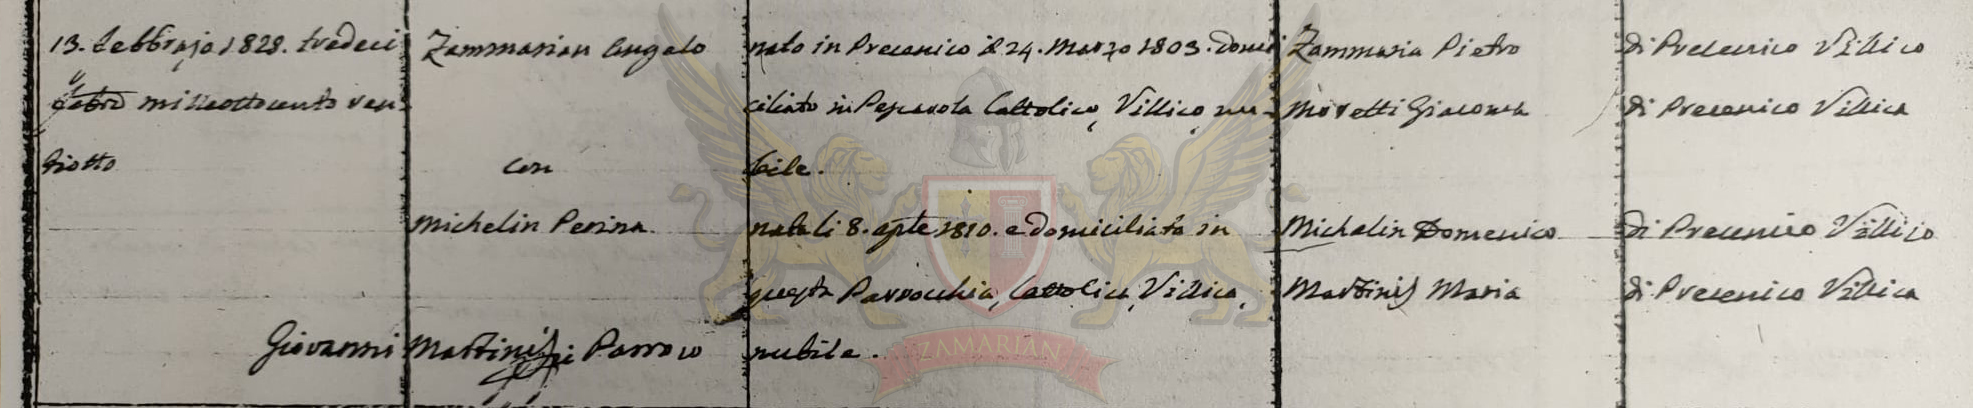 13. Febbrajo 1828. tredeci Zammarian Angelo nato in Precenico il 24. Marzo 1803. domi Zammaria Pietro di Precenico Villico
Febro milleottocento ven ciliato in Pescarola Cattolico, Villico, nu- Moretti Giacoma di Precenico Villica
tiotto con bile.
Michelin Perina nata li 8. 1810. e domiciliata in Michelin Domenico di Precenico Villico
questa Parrocchia, Cattolica, Villica, Martinis Maria di Precenico Villica
Giovanni Martinis Parroco nubile.
ZAMARIAN